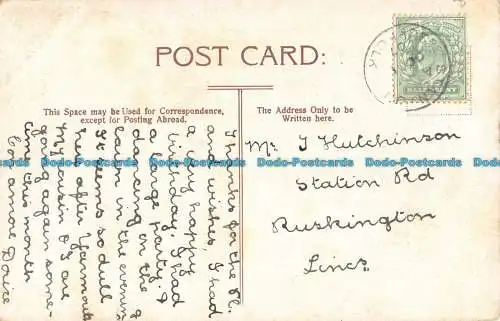 POST CARD:
This Space may be Used for Correspondence,
except for Posting Abroad.
The Address Only to be
Written here.
HALFPENNY
Thanks for the P.C.
and wishes, I had
a very happy
birthday. I had
a large party. &
dancing on the
lawn in the evening
It seems so dull
here after Yarmouth
My cousin & I are
going again some-
time this month
Love
Mr J Hutchinson
Station Rd
Ruskington
Lincs
Dodo-Postcards Dodo-Postcards Dodo-Postcards Dodo-Postcards Dodo-Postcards